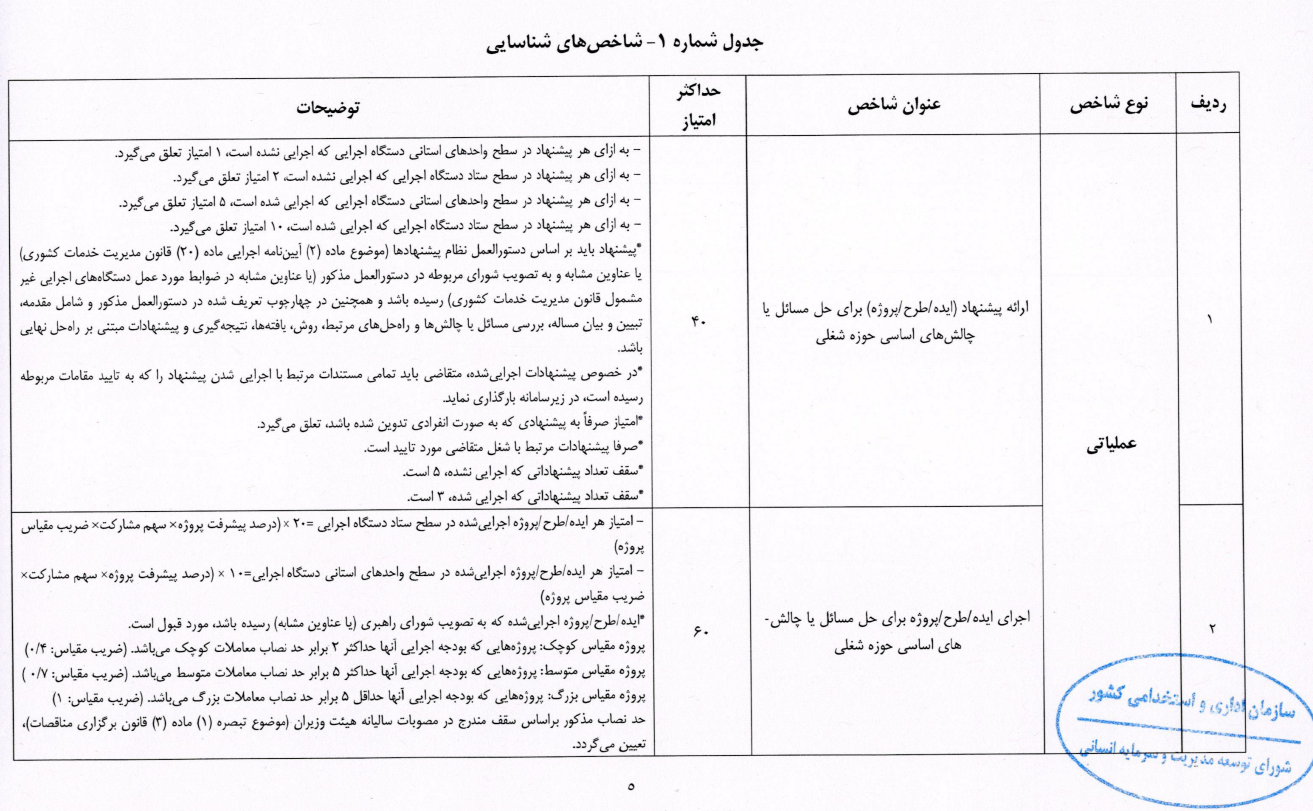 جدول شماره ۱- شاخص‌های شناسایی
ردیف
نوع شاخص
عنوان شاخص
حداکثر
امتیاز
توضیحات
۱
عملیاتی
ارائه پیشنهاد (ایده/طرح/پروژه) برای حل مسائل یا
چالش‌های اساسی حوزه شغلی
۴۰
- به ازای هر پیشنهاد در سطح واحدهای استانی دستگاه اجرایی که اجرایی نشده است، ۱ امتیاز تعلق می‌گیرد.
- به ازای هر پیشنهاد در سطح ستاد دستگاه اجرایی که اجرایی نشده است، ۲ امتیاز تعلق می‌گیرد.
- به ازای هر پیشنهاد در سطح واحدهای استانی دستگاه اجرایی که اجرایی شده است، ۵ امتیاز تعلق می‌گیرد.
- به ازای هر پیشنهاد در سطح ستاد دستگاه اجرایی که اجرایی شده است، ۱۰ امتیاز تعلق می‌گیرد.
*پیشنهاد باید بر اساس دستورالعمل نظام پیشنهادها (موضوع ماده (۲) آیین‌نامه اجرایی ماده (۲۰) قانون مدیریت خدمات کشوری)
یا عناوین مشابه و به تصویب شورای مربوطه در دستورالعمل مذکور (یا عناوین مشابه در ضوابط مورد عمل دستگاه‌های اجرایی غیر
مشمول قانون مدیریت خدمات کشوری) رسیده باشد و همچنین در چهارچوب تعریف شده در دستورالعمل مذکور و شامل مقدمه،
تبیین و بیان مساله، بررسی مسائل یا چالش‌ها و راه‌حل‌های مرتبط، روش، یافته‌ها، نتیجه‌گیری و پیشنهادات مبتنی بر راه‌حل نهایی
باشد.
*در خصوص پیشنهادات اجرایی‌شده، متقاضی باید تمامی مستندات مرتبط با اجرایی شدن پیشنهاد را که به تایید مقامات مربوطه
رسیده است، در زیرسامانه بارگذاری نماید.
*امتیاز صرفاً به پیشنهادی که به صورت انفرادی تدوین شده باشد، تعلق می‌گیرد.
*صرفا پیشنهادات مرتبط با شغل متقاضی مورد تایید است.
*سقف تعداد پیشنهاداتی که اجرایی نشده، ۵ است.
*سقف تعداد پیشنهاداتی که اجرایی شده، ۳ است.
۲
اجرای ایده/طرح/پروژه برای حل مسائل یا چالش-
های اساسی حوزه شغلی
۶۰
- امتیاز هر ایده/طرح/پروژه اجرایی‌شده در سطح ستاد دستگاه اجرایی =۲۰ × (درصد پیشرفت پروژه× سهم مشارکت× ضریب مقیاس
پروژه)
- امتیاز هر ایده/طرح/پروژه اجرایی‌شده در سطح واحدهای استانی دستگاه اجرایی=۱۰ × (درصد پیشرفت پروژه× سهم مشارکت×
ضریب مقیاس پروژه)
*ایده/طرح/پروژه اجرایی‌شده که به تصویب شورای راهبری (یا عناوین مشابه) رسیده باشد، مورد قبول است.
پروژه مقیاس کوچک: پروژه‌هایی که بودجه اجرایی آنها حداکثر ۲ برابر حد نصاب معاملات کوچک می‌باشد. (ضریب مقیاس: ۰/۴)
پروژه مقیاس متوسط: پروژه‌هایی که بودجه اجرایی آنها حداکثر ۵ برابر حد نصاب معاملات متوسط می‌باشد. (ضریب مقیاس: ۰/۷ )
پروژه مقیاس بزرگ: پروژه‌هایی که بودجه اجرایی آنها حداقل ۵ برابر حد نصاب معاملات بزرگ می‌باشد. (ضریب مقیاس: ۱)
حد نصاب مذکور براساس سقف مندرج در مصوبات سالیانه هیئت وزیران (موضوع تبصره (۱) ماده (۳) قانون برگزاری مناقصات)،
تعیین می‌گردد.
سازمان اداری و استخدامی کشور
شورای توسعه مدیریت و سرمایه انسانی
۵